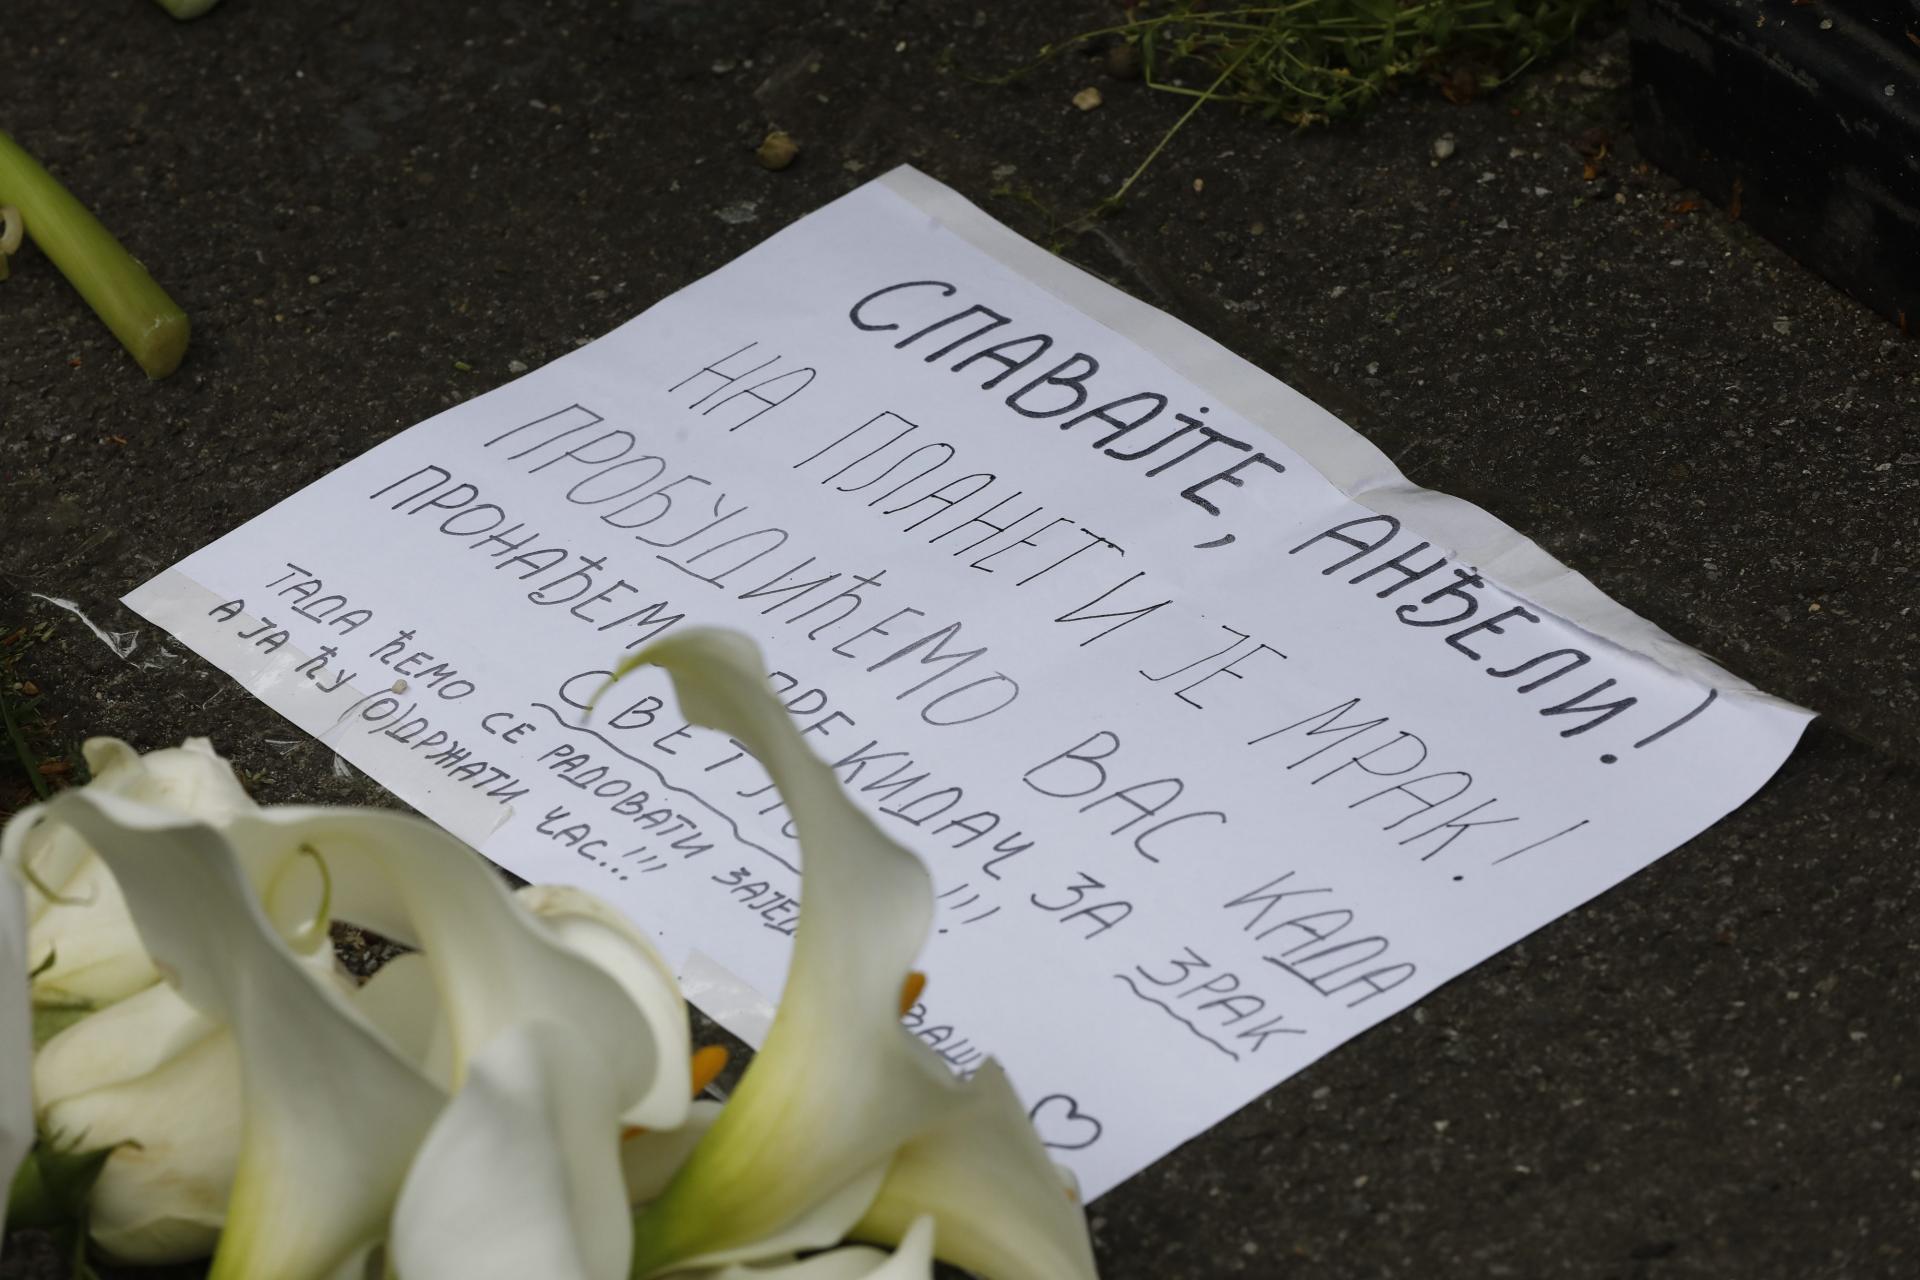 СПАВАЈТЕ, АНЂЕЛИ!
НА ПЛАНЕТИ ЈЕ МРАК!
ПРОБУДИЋЕМО ВАС КАДА
ПРОНАЂЕМО ПРЕКИДАЧ ЗА ЗРАК
СВЕТЛО !!!
ТАДА ЋЕМО СЕ РАДОВАТИ ЗАЈЕД
А ЈА ЋУ (О)ДРЖАТИ ЧАС...!!!